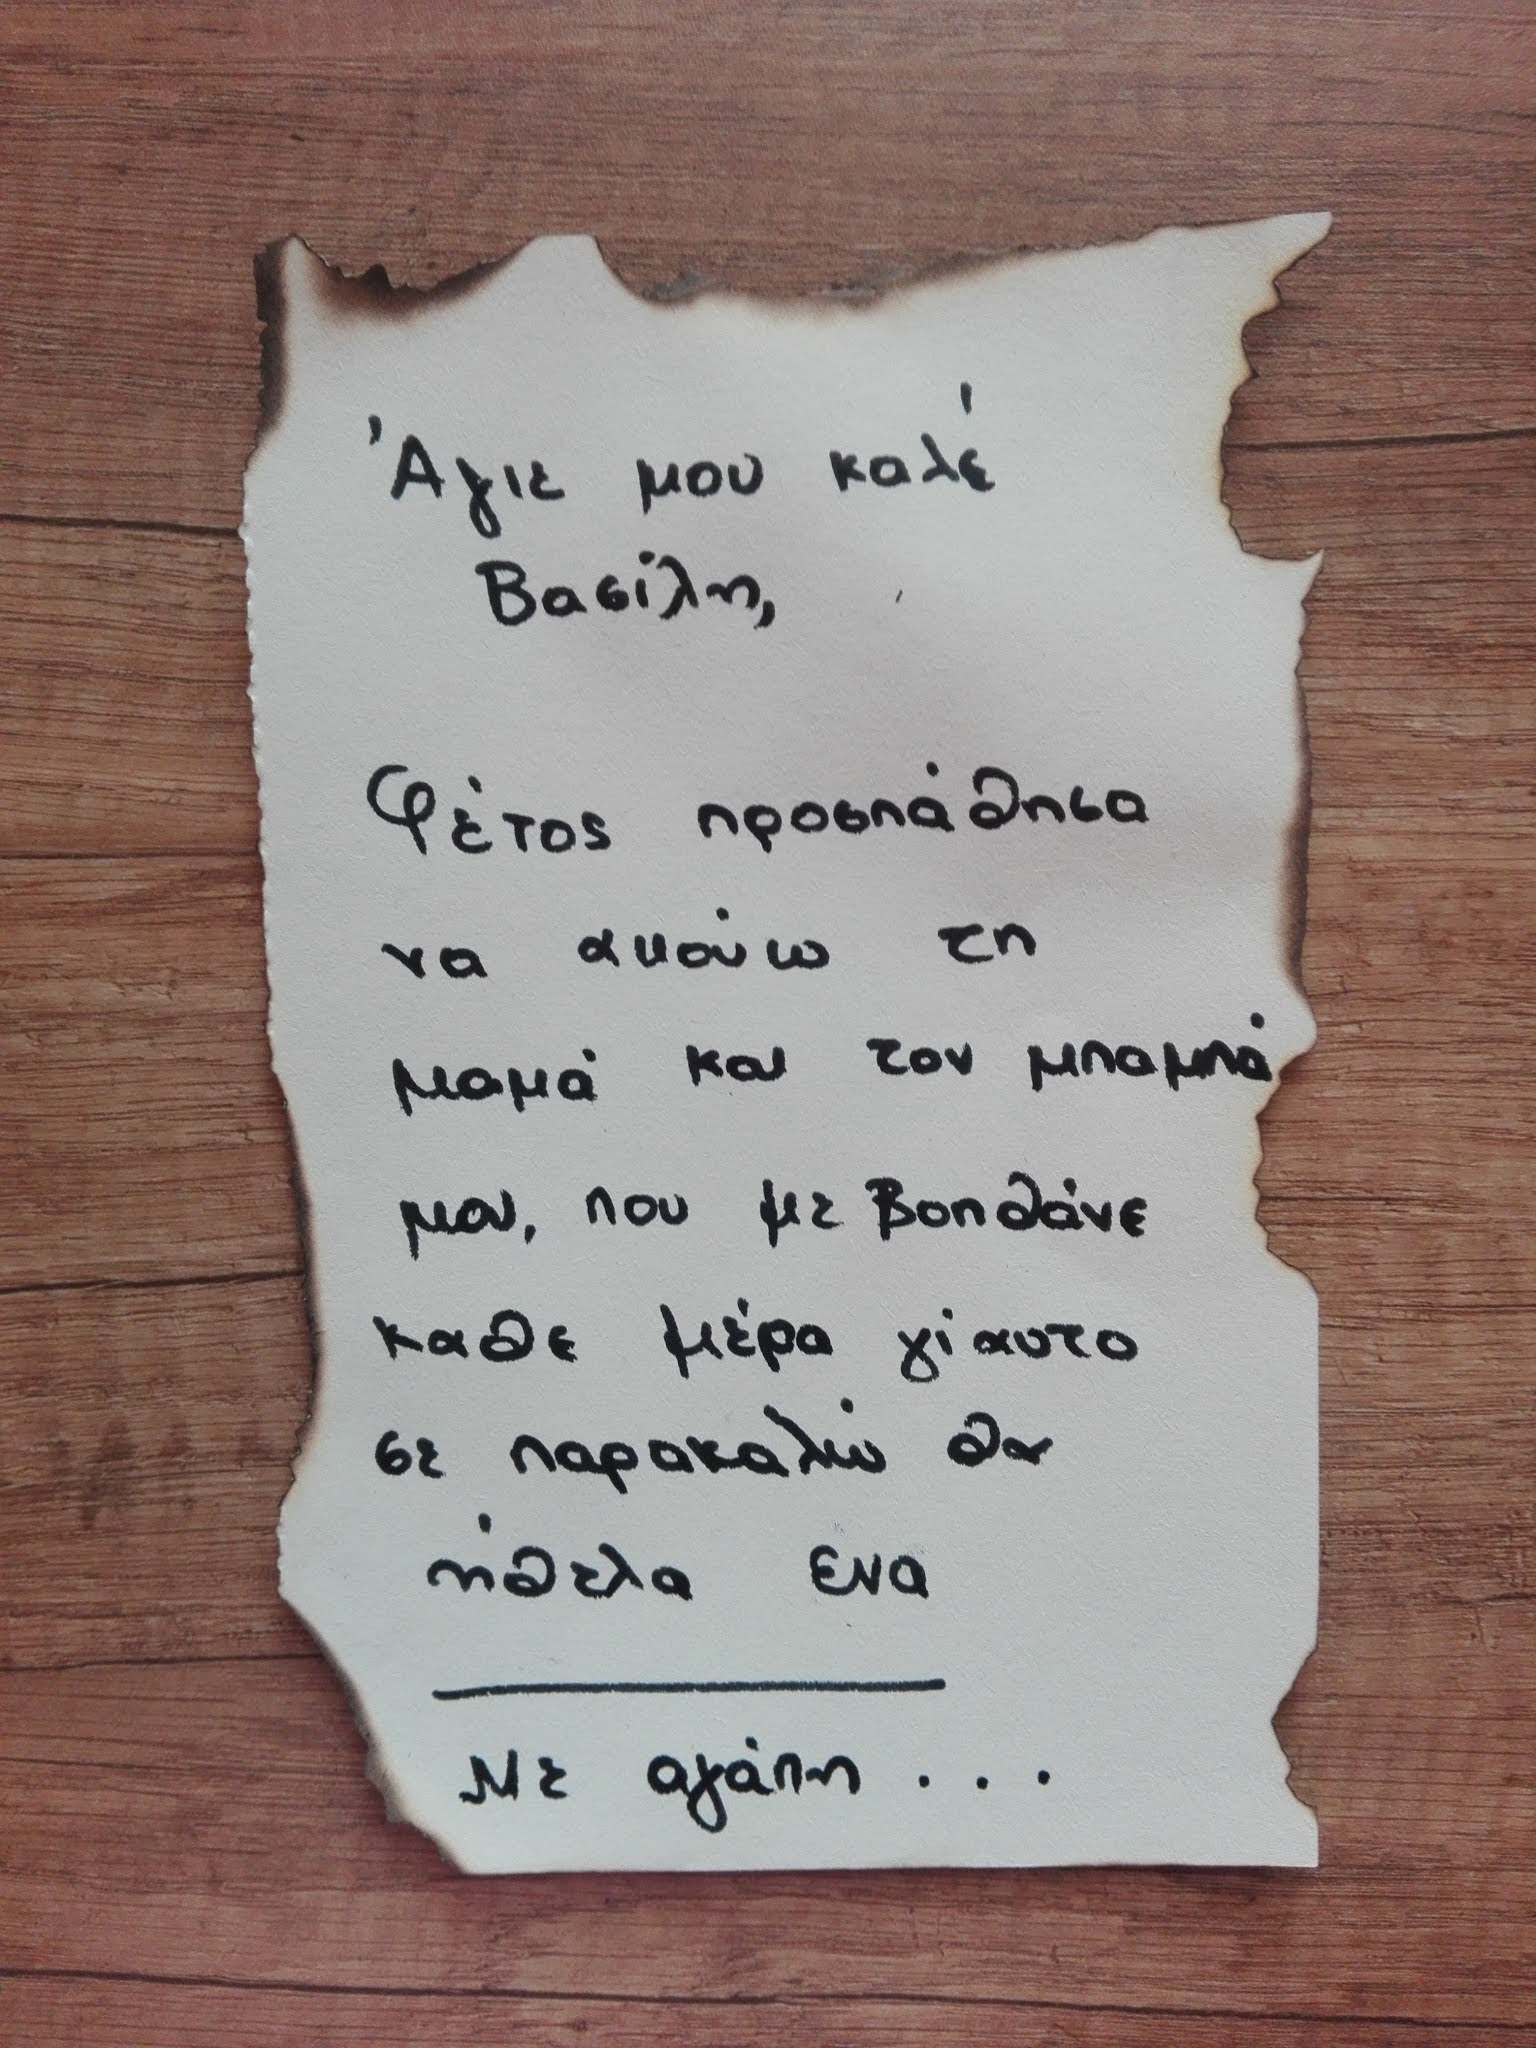 Άγιε μου καλέ
Βασίλη,
Φέτος προσπάθησα
να ακούω τη
μαμά και τον μπαμπά
μου, που με Βοηθάνε
καθε μέρα γίαυτο
σε παρακαλώ θα
ήθελα ενα
Με αγάπη...